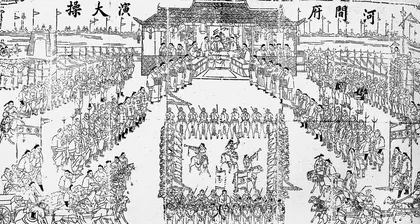 河間府
演大操